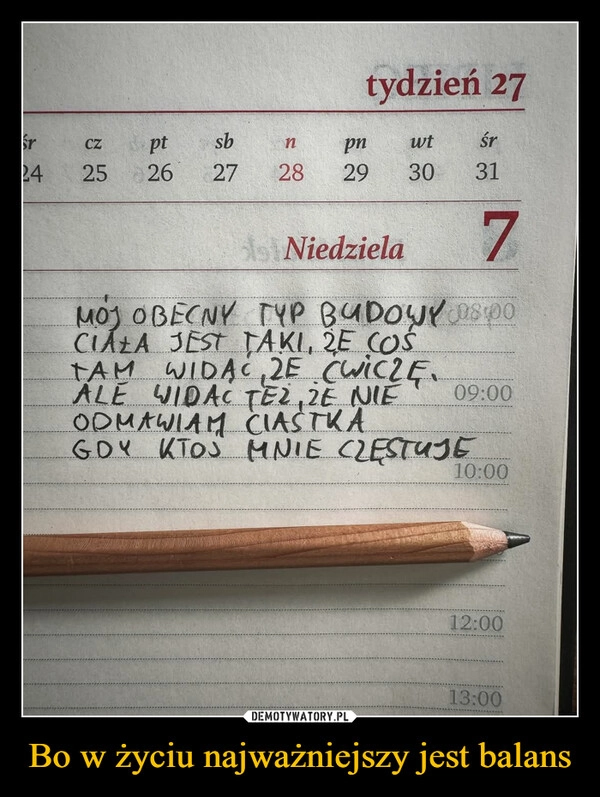 tydzień 27
śr cz pt sb n pn wt śr
24 25 26 27 28 29 30 31
Niedziela 7
MÓJ OBECNY TYP BUDOWY 08:00
CIAŁA JEST TAKI, ŻE COŚ
TAM WIDAĆ, ŻE ĆWICZĘ.
ALE WIDAĆ TEŻ, ŻE NIE 09:00
ODMAWIAM CIASTKA
GDY KTOŚ MNIE CZĘSTUJE
10:00
12:00
13:00
DEMOTYWATORY.PL
Bo w życiu najważniejszy jest balans